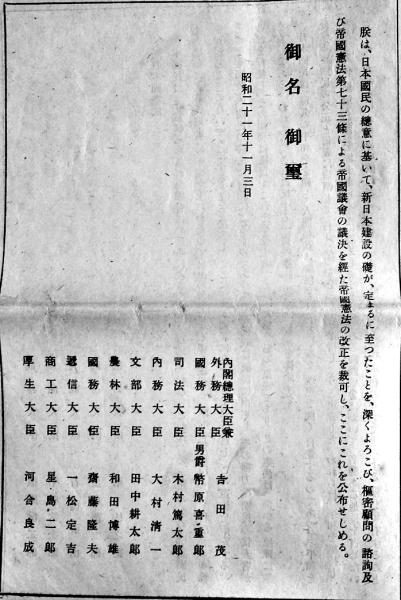 朕は、日本國民の總意に基いて、新日本建設の礎が、定まるに至つたことを、深くよろこび、樞密顧問の諮詢及
び帝國憲法第七十三條による帝國議會の議決を經た帝國憲法の改正を裁可し、ここにこれを公布せしめる。
御名 御璽
昭和二十一年十一月三日
內閣總理大臣兼
外務大臣 吉田茂
國務大臣 男爵 幣原喜重郞
司法大臣 木村篤太郞
內務大臣 大村淸一
文部大臣 田中耕太郞
農林大臣 和田博雄
國務大臣 齋藤隆夫
遞信大臣 一松定吉
商工大臣 星島二郞
厚生大臣 河合良成